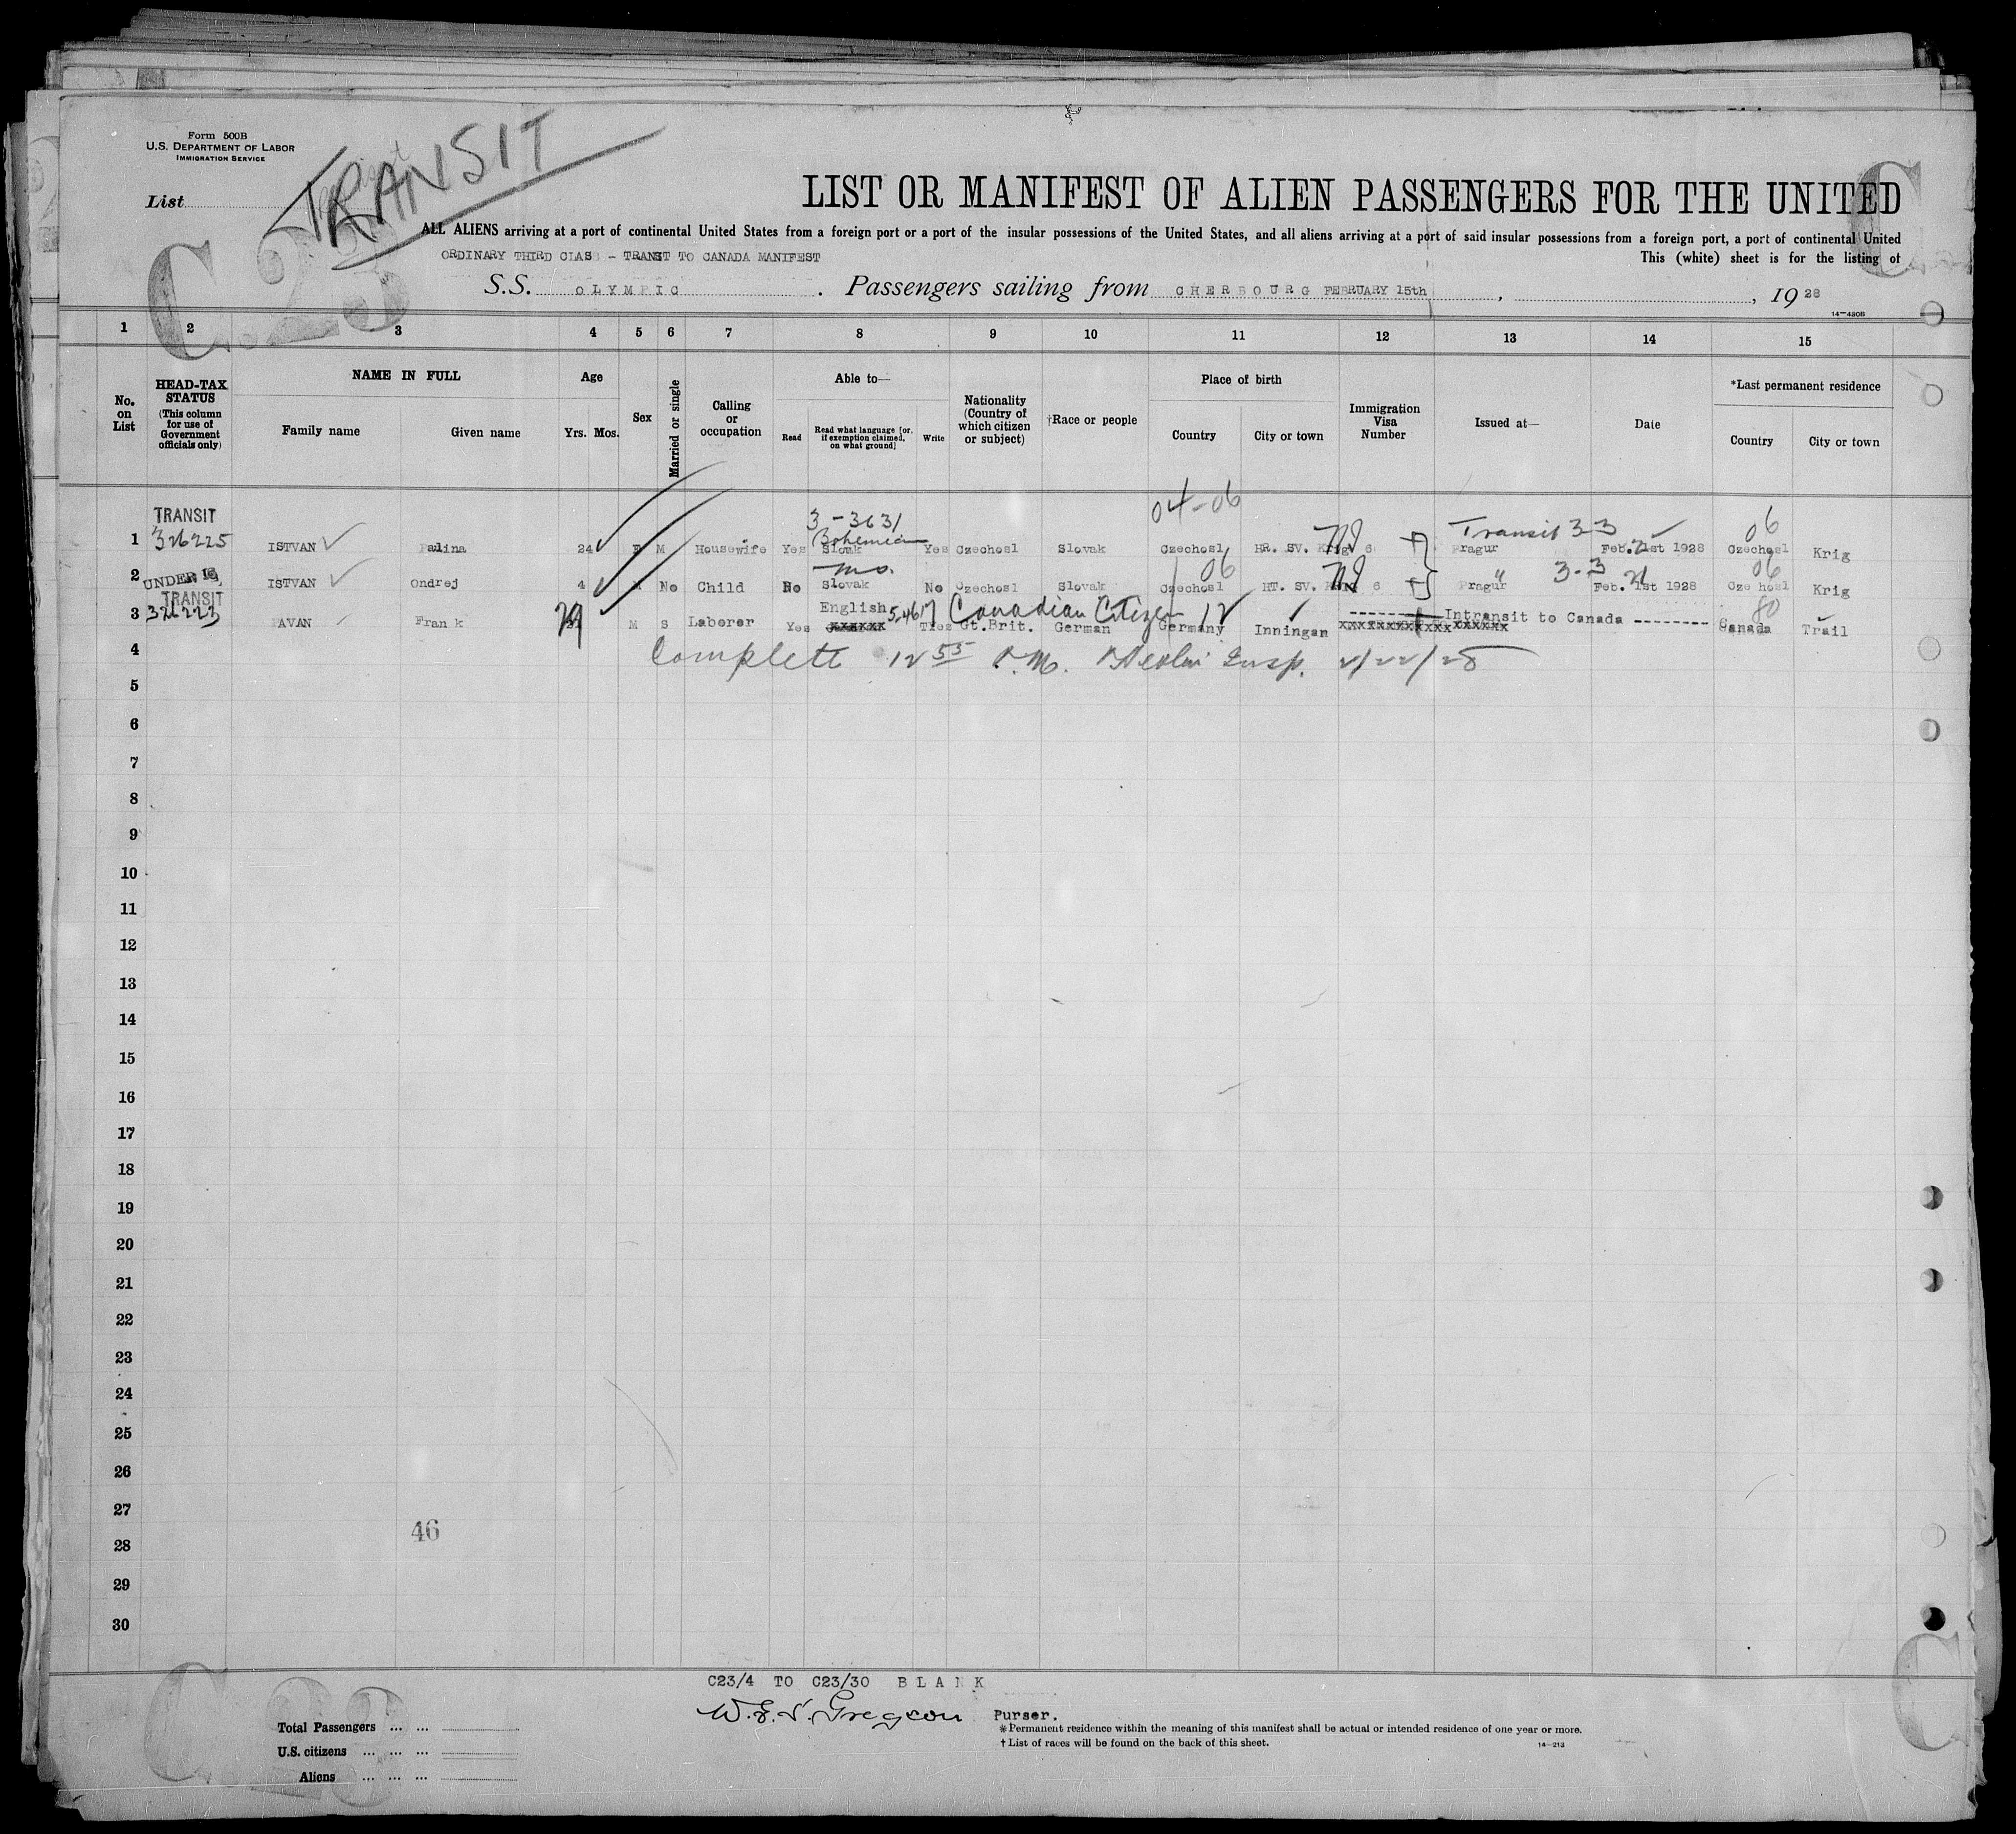 Form 500B
U.S. DEPARTMENT OF LABOR
IMMIGRATION SERVICE
TRANSIT
List
LIST OR MANIFEST OF ALIEN PASSENGERS FOR THE UNITED
ALL ALIENS arriving at a port of continental United States from a foreign port or a port of the insular possessions of the United States, and all aliens arriving at a port of said insular possessions from a foreign port, a port of continental United
ORDINARY THIRD CLASS - TRANSIT TO CANADA MANIFEST
This (white) sheet is for the listing of
S.S. OLYMPIC. Passengers sailing from CHERBOURG FEBRUARY 15th, , 1928
14-480B
C 23 C
1 2 3 4 5 6 7 8 9 10 11 12 13 14 15
No. on List
HEAD-TAX STATUS (This column for use of Government officials only)
NAME IN FULL
Family name Given name
Age
Yrs. Mos.
Sex
Married or single
Calling or occupation
Able to—
Read
Read what language [or, if exemption claimed, on what ground]
Write
Nationality (Country of which citizen or subject)
†Race or people
Place of birth
Country City or town
Immigration Visa Number
Issued at—
Date
*Last permanent residence
Country City or town
04-06
TRANSIT 3-3631 Transit 3-3 06
1 326225 ISTVAN Palina 24 F M Housewife Yes Bohemian Slovak Yes Czechosl Slovak Czechosl HR. SV. 6 Pragur Feb. 21st 1928 Czechosl Krig
mo. 06 3-3 06
2 UNDER 16 ISTVAN Ondrej 4 No Child No Slovak No Czechosl Slovak Czechosl HT. SV. 6 Pragur " Feb. 21st 1928 Czechosl Krig
TRANSIT English 5-4617 Canadian Citizen 12 80
3 326223 PAVAN Frank 29 M S Laborer Yes xxxxxx Yes Gt.Brit. German Germany Inningen xxxxxxxxxxxxxxxxxx Intransit to Canada -------- Canada Trail
4 Complete 12 55 P.M. Insp. 2/22/28
5
6
7
8
9
10
11
12
13
14
15
16
17
18
19
20
21
22
23
24
25
26
27
46
28
29
30
C23/4 TO C23/30 BLANK
Purser.
Total Passengers ... ...
U.S. citizens ... ... ...
Aliens ... ... ...
*Permanent residence within the meaning of this manifest shall be actual or intended residence of one year or more.
†List of races will be found on the back of this sheet.
14-213
C 23 C